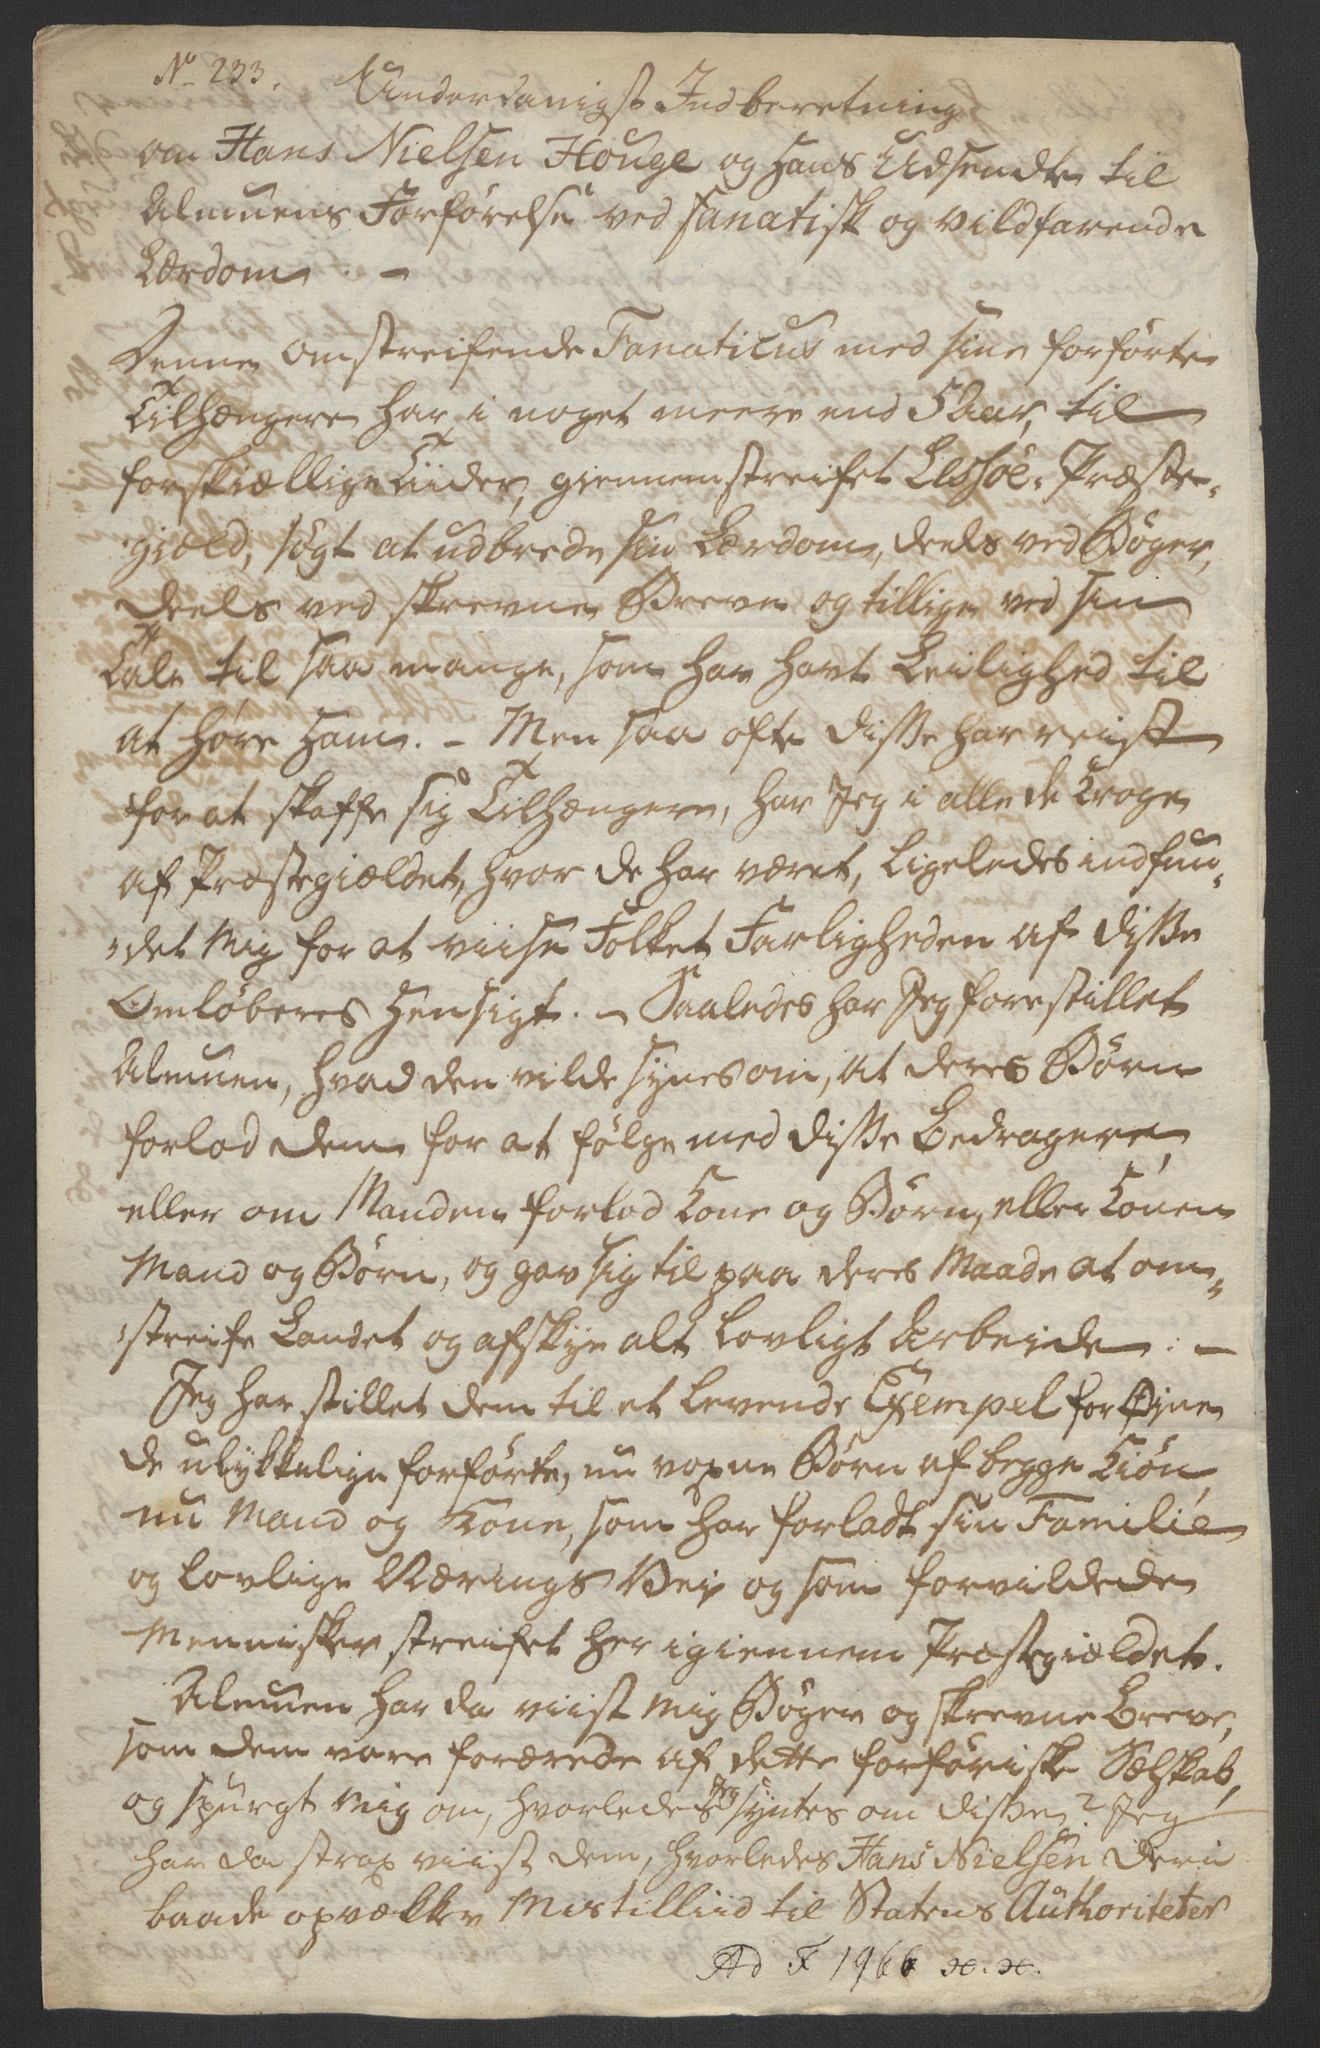 No 233. Underdanigst Indberetning
om Hans Nielsen Houge og hans Udsendte til
Almuens Forførelse ved fanatisk og vildfarende
Lærdom. –
Denne omstreifende Fanaticus med sine forførte
Tilhængere har, i noget meere end 5 Aar, til
forskiællige Tiider, giennemstreifet Lessøe-Præste-
giæld, søgt at udbrede sin Lærdom, deels ved Bøger,
deels ved skrevne Breve og tillige ved sin
Tale til saa mange, som har havt Leilighed til
at høre ham. – Men saa ofte disse har reist
for at skaffe sig Tilhængere, har Jeg i alle de Kroge
af Præstegiældet, hvor de har været, ligeledes indfun-
det mig for at viise Folket Farligheden af disse
Omløberes Hensigt. – Saaledes har Jeg forestillet
Almuen, hvad den vilde synes om, at deres Børn
forlod dem for at følge med disse Bedragere,
eller om Manden forlod Kone og Børn, eller Konen
Mand og Børn, og gav sig til paa deres Maade at om-
streife Landet og afskye alt lovligt Arbeide. –
Jeg har stillet dem til et levende Exempel for Øyne
de ulykkelige forførte, nu voxne Børn af begge Kiøn,
nu Mand og Kone, som har forladt sin Familie
og lovlige Nærings Vei og som forvildede
Mennisker streifet her igiennem Præstegiældet.
Almuen har da viist mig Bøger og skrevne Breve,
som dem vare forærede af dette forføriske Selskab,
og spurgt mig om, hvorledes Jeg syntes om disse? Jeg
har da strax viist dem, hvorledes Hans Nielsen deri
baade opvækker Mistilliid til Statens Authoriteter
Ad F 1966